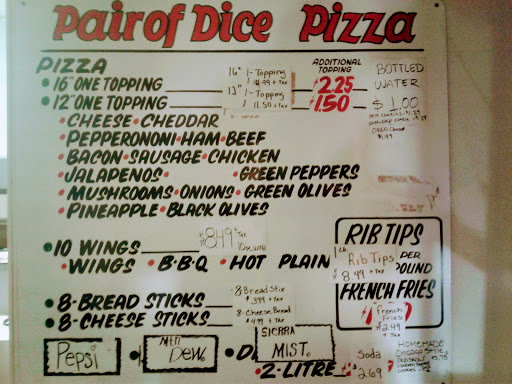 Pair of Dice Pizza
PIZZA
16" 1-Topping
ADDITIONAL TOPPING
BOTTLED WATER
• 16" ONE TOPPING
+ Tax
$2.25
• 12" ONE TOPPING
1-Topping
11.50 + Tax
$1.50
$1.00
• CHEESE • CHEDDAR
• PEPPERONONI • HAM • BEEF
• BACON • SAUSAGE • CHICKEN
• JALAPENOS • GREEN PEPPERS
• MUSHROOMS • ONIONS • GREEN OLIVES
• PINEAPPLE • BLACK OLIVES
• 10 WINGS
8.49 + Tax
• WINGS • B•B•Q • HOT PLAIN
RIB TIPS
1 Lb. Rib Tips PER POUND
8.99 + Tax
FRENCH FRIES
French Fries
2.49
+ Tax
• 8-BREAD STICKS
8 Bread Stix
$3.99 + Tax
• 8-CHEESE STICKS
8-Cheese Bread
$4.99 + Tax
Pepsi
Mtn Dew
SIERRA MIST.
• 2-LITRE
Soda
2.69
HOMEMADE